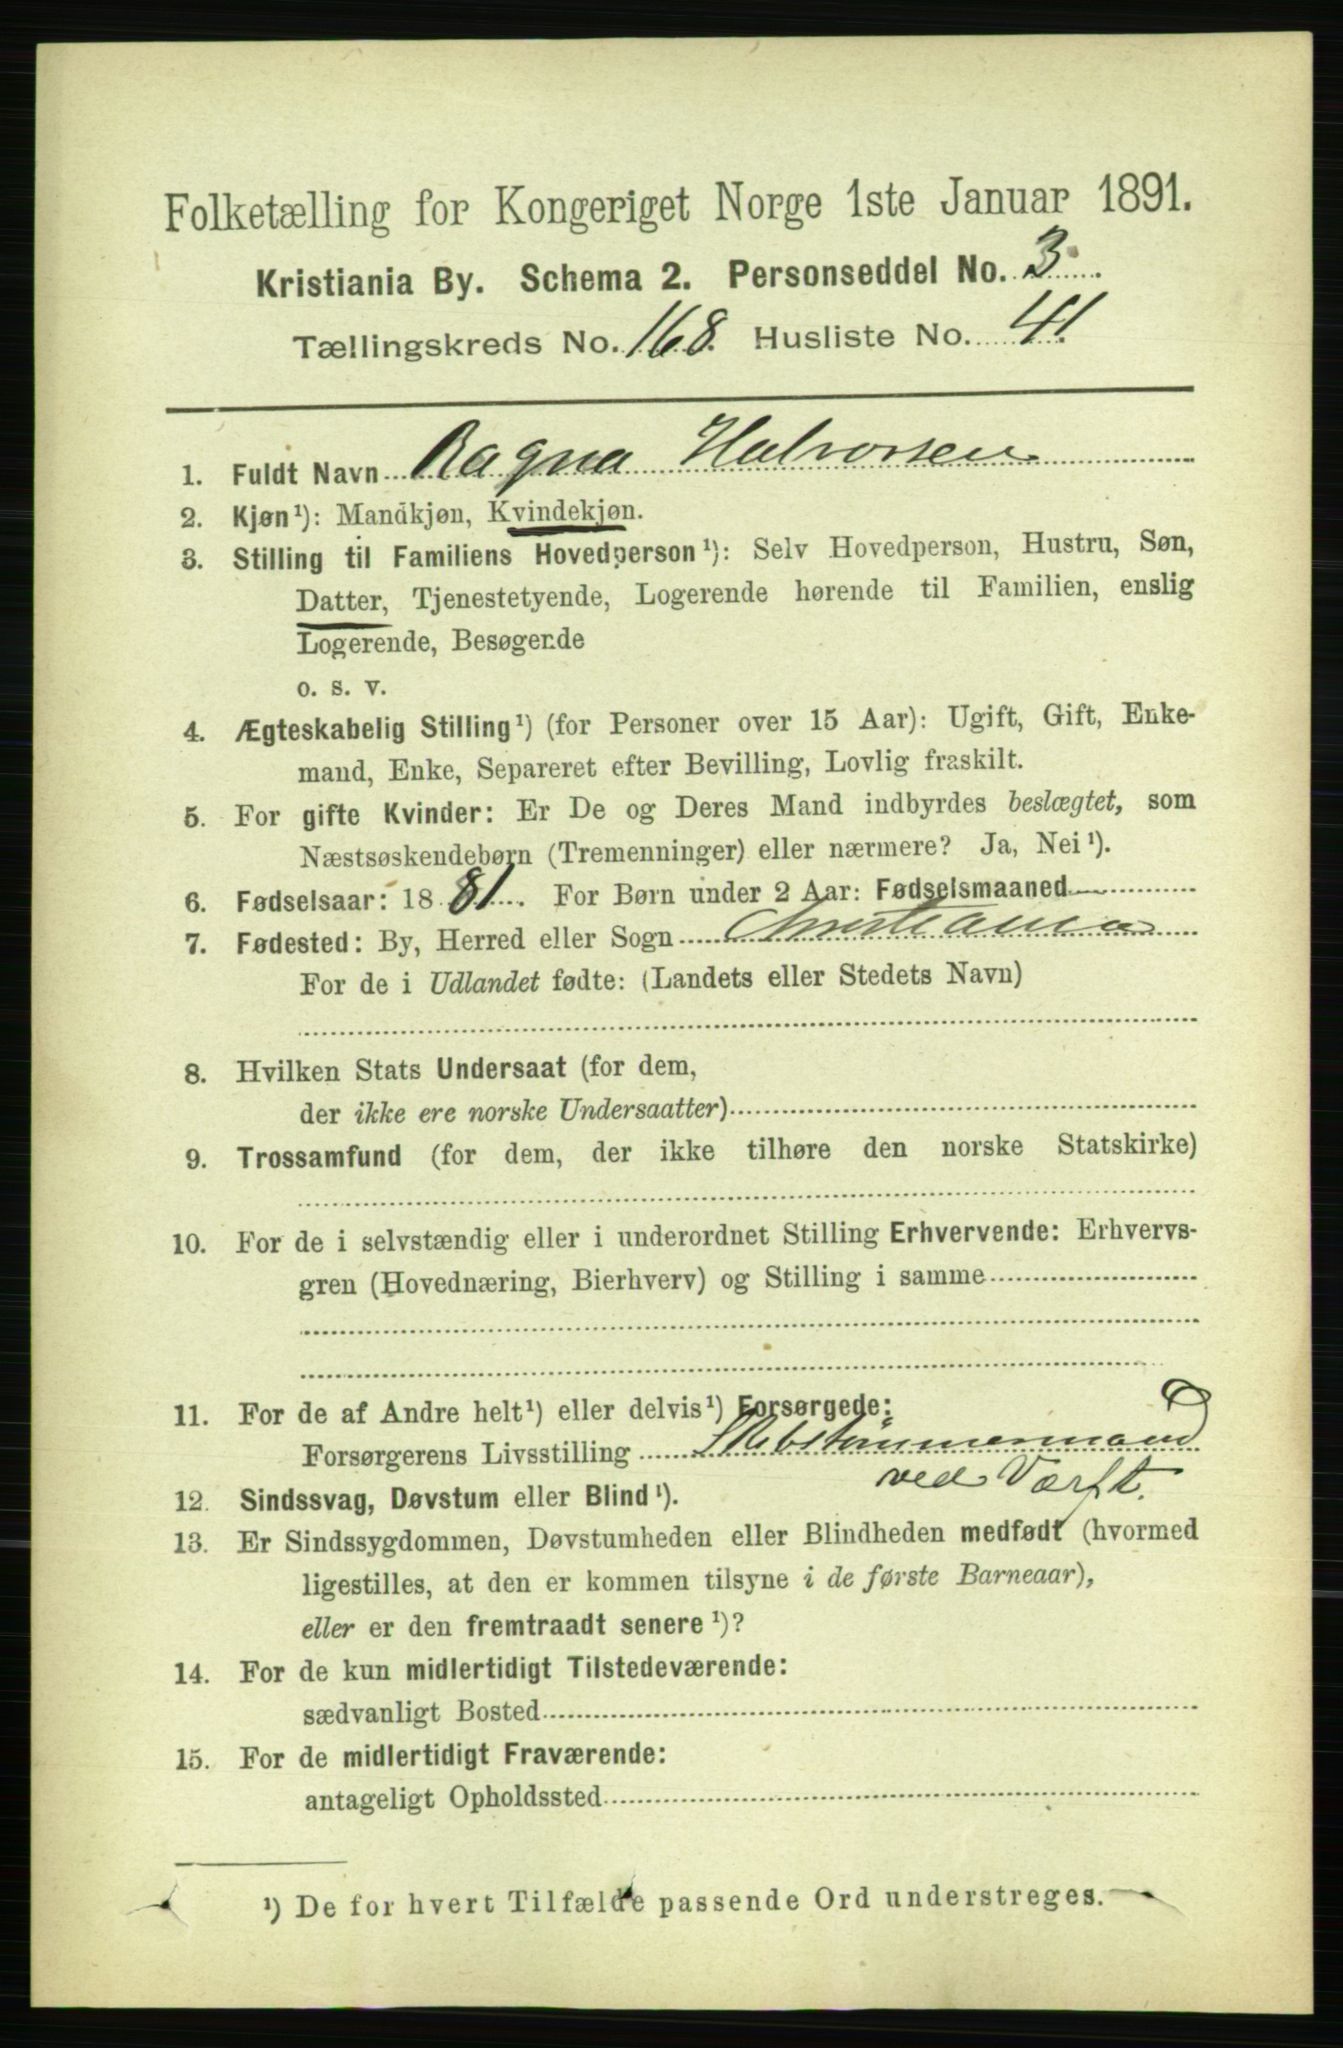 Folketælling for Kongeriget Norge 1ste Januar 1891.
Kristiania By. Schema 2. Personseddel No. 3
Tællingskreds No. 168. Husliste No. 41.
1. Fuldt Navn Ragna Halvorsen
2. Kjøn¹): Mandkjøn, Kvindekjøn.
3. Stilling til Familiens Hovedperson¹): Selv Hovedperson, Hustru, Søn,
Datter, Tjenestetyende, Logerende hørende til Familien, enslig
Logerende, Besøgende
o. s. v.
4. Ægteskabelig Stilling¹) (for Personer over 15 Aar): Ugift, Gift, Enke-
mand, Enke, Separeret efter Bevilling, Lovlig fraskilt.
5. For gifte Kvinder: Er De og Deres Mand indbyrdes beslægtet, som
Næstsøskendebørn (Tremenninger) eller nærmere? Ja, Nei¹).
6. Fødselsaar: 1881. For Børn under 2 Aar: Fødselsmaaned
7. Fødested: By, Herred eller Sogn Christiania
For de i Udlandet fødte: (Landets eller Stedets Navn)
8. Hvilken Stats Undersaat (for dem,
der ikke ere norske Undersaatter)
9. Trossamfund (for dem, der ikke tilhøre den norske Statskirke)
10. For de i selvstændig eller i underordnet Stilling Erhvervende: Erhvervs-
gren (Hovednæring, Bierhverv) og Stilling i samme
11. For de af Andre helt¹) eller delvis¹) Forsørgede:
Forsørgerens Livsstilling Skibstømmermand
ved Værft.
12. Sindssvag, Døvstum eller Blind¹).
13. Er Sindssygdommen, Døvstumheden eller Blindheden medfødt (hvormed
ligestilles, at den er kommen tilsyne i de første Barneaar),
eller er den fremtraadt senere¹)?
14. For de kun midlertidigt Tilstedeværende:
sædvanligt Bosted
15. For de midlertidigt Fraværende:
antageligt Opholdssted
¹) De for hvert Tilfælde passende Ord understreges.